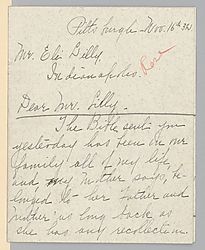 Pittsburgh - Nov. 16th 32
Mr. Eli Lilly,
Indianapolis.
Dear Mr. Lilly.
The Bible sent you
yesterday has been in our
family all of my life
and my mother said, be-
longed to her father and
mother as long back as
she has any recollection